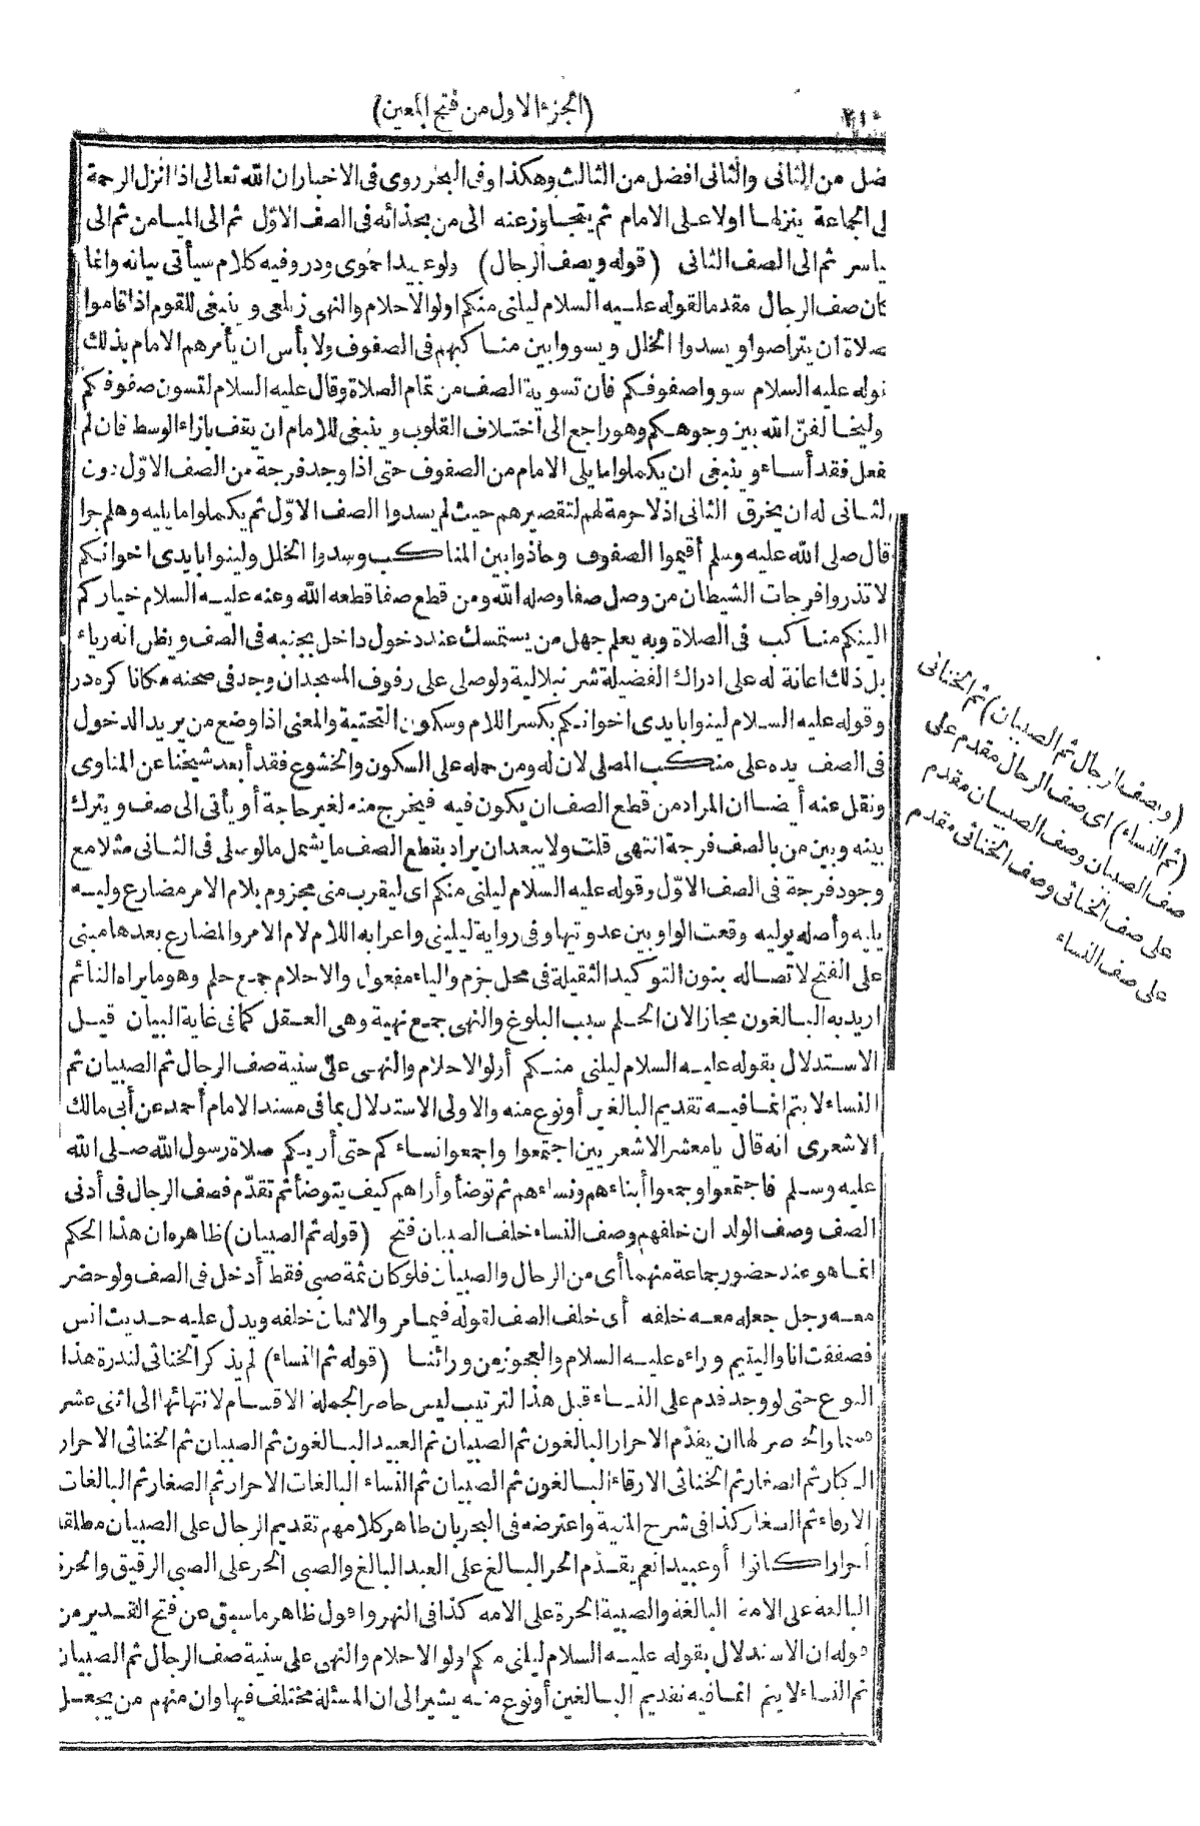 ٢١٠
(الجزء الاول من فتح المعين)
ضل من الثانى والثانى افضل من الثالث وهكذا وفى البحر روى فى الاخبار ان الله تعالى اذا انزل الرحمة
لى الجماعة ينزلها اولا على الامام ثم يتجاوز عنه الى من بحذائه فى الصف الاوّل ثم الى الميامن ثم الى
ياسر ثم الى الصف الثانى (قوله ويصف الرجال) ولو عبيدا حموى ودر وفيه كلام سيأتى بيانه وانما
كان صف الرجال مقدما لقوله عليه السلام ليلنى منكم اولو الاحلام والنهى زيلعى و ينبغى للقوم اذا قاموا
صلاة ان يتراصوا و يسدوا الخلل و يسووا بين مناكبهم فى الصفوف ولا بأس ان يأمرهم الامام بذلك
نوله عليه السلام سووا صفوفكم فان تسوية الصف من تمام الصلاة وقال عليه السلام لتسون صفوفكم
وليخالفنّ الله بين وجوهكم وهو راجع الى اختلاف القلوب و ينبغى للامام ان يقف بازاء الوسط فان لم
فعل فقد أساء و ينبغى ان يكملوا ما يلى الامام من الصفوف حتى اذا وجد فرجة من الصف الاوّل دون
لثانى له ان يخرق الثانى اذ لا حرمة لهم لتقصيرهم حيث لم يسدوا الصف الاوّل ثم يكملوا ما يليه وهلم جرا
قال صلى الله عليه وسلم أقيموا الصفوف وحاذوا بين المناكب وسدوا الخلل ولينوا بايدى اخوانكم
لا تذروا فرجات الشيطان من وصل صفا وصله الله ومن قطع صفا قطعه الله وعنه عليه السلام خياركم
الينكم مناكب فى الصلاة وبه يعلم جهل من يستمسك عند دخول داخل بجنبه فى الصف و يظن انه رياء
بل ذلك اعانة له على ادراك الفضيلة شرنبلالية ولو صلى على رفوف المسجد ان وجد فى صحنه مكانا كره در
وقوله عليه السلام لينوا بايدى اخوانكم بكسر اللام وسكون التحتية والمعنى اذا وضع من يريد الدخول
فى الصف يده على منكب المصلى لان له ومن حمله على السكون والخشوع فقد أبعد شيخنا عن المناوى
ونقل عنه أيضا ان المراد من قطع الصف ان يكون فيه فيخرج منه لغير حاجة أو يأتى الى صف و يترك
بينه وبين من بالصف فرجة انتهى قلت ولا يبعد ان يراد بقطع الصف ما يشمل ما لو صلى فى الثانى مثلا مع
وجود فرجة فى الصف الاوّل وقوله عليه السلام ليلنى منكم اى ليقرب منى مجزوم بلام الامر مضارع وليه
يليه وأصله يوليه وقعت الواو بين عدوتيها وفى رواية ليلينى واعرابه اللام لام الامر والمضارع بعدها مبنى
على الفتح لاتصاله بنون التوكيد الثقيلة فى محل جزم والياء مفعول والاحلام جمع حلم وهو ما يراه النائم
اريد به البالغون مجازا لان الحلم سبب البلوغ والنهى جمع نهية وهى العقل كما فى غاية البيان قيل
الاستدلال بقوله عليه السلام ليلنى منكم أولو الاحلام والنهى على سنية صف الرجال ثم الصبيان ثم
النساء لا يتم انما فيه تقديم البالغين أو نوع منه والاولى الاستدلال بما فى مسند الامام أحمد عن أبى مالك
الاشعرى انه قال يا معشر الاشعريين اجتمعوا واجمعوا نساءكم حتى أريكم صلاة رسول الله صلى الله
عليه وسلم فاجتمعوا وجمعوا أبناءهم ونساءهم ثم توضأ وأراهم كيف يتوضأ ثم تقدّم فصف الرجال فى أدنى
الصف وصف الولدان خلفهم وصف النساء خلف الصبيان فتح (قوله ثم الصبيان) ظاهره ان هذا الحكم
انما هو عند حضور جماعة منهما أى من الرجال والصبيان فلو كان ثمة صبى فقط أدخل فى الصف ولو حضر
معه رجل جعله معه خلفه أى خلف الصف لقوله فيما مر والاثنان خلفه ويدل عليه حديث انس
فصففت انا واليتيم وراءه عليه السلام والعجوز من ورائنا (قوله ثم النساء) لم يذكر الخناثى لندرة هذا
النوع حتى لو وجد قدم على النساء قبل هذا الترتيب ليس حاصرا لجملة الاقسام لانتهائها الى اثنى عشر
قسما والحاصر لها ان يقدّم الاحرار البالغون ثم الصبيان ثم العبيد البالغون ثم الصبيان ثم الخناثى الاحرار
الكبار ثم الصغار ثم الخناثى الارقاء البالغون ثم الصبيان ثم النساء البالغات الاحرار ثم الصغار ثم البالغات
الارقاء ثم الصغار كذا فى شرح المنية واعترضه فى البحر بان ظاهر كلامهم تقديم الرجال على الصبيان مطلقا
أحرارا كانوا أو عبيدا نعم يقدّم الحر البالغ على العبد البالغ والصبى الحر على الصبى الرقيق والحرة
البالغة على الامة البالغة والصبية الحرة على الامه كذا فى النهر واقول ظاهر ما سبق عن فتح القدير من
قوله ان الاستدلال بقوله عليه السلام ليلنى منكم اولو الاحلام والنهى على سنية صف الرجال ثم الصبيان
ثم النساء لا يتم انما فيه تقديم البالغين أو نوع منه يشير الى ان المسئلة مختلف فيها وان منهم من يجعل
(ويصف الرجال ثم الصبيان) ثم الخناثى
(ثم النساء) اى صف الرجال مقدم على
صف الصبيان وصف الصبيان مقدم
على صف الخناثى وصف الخناثى مقدم
على صف النساء